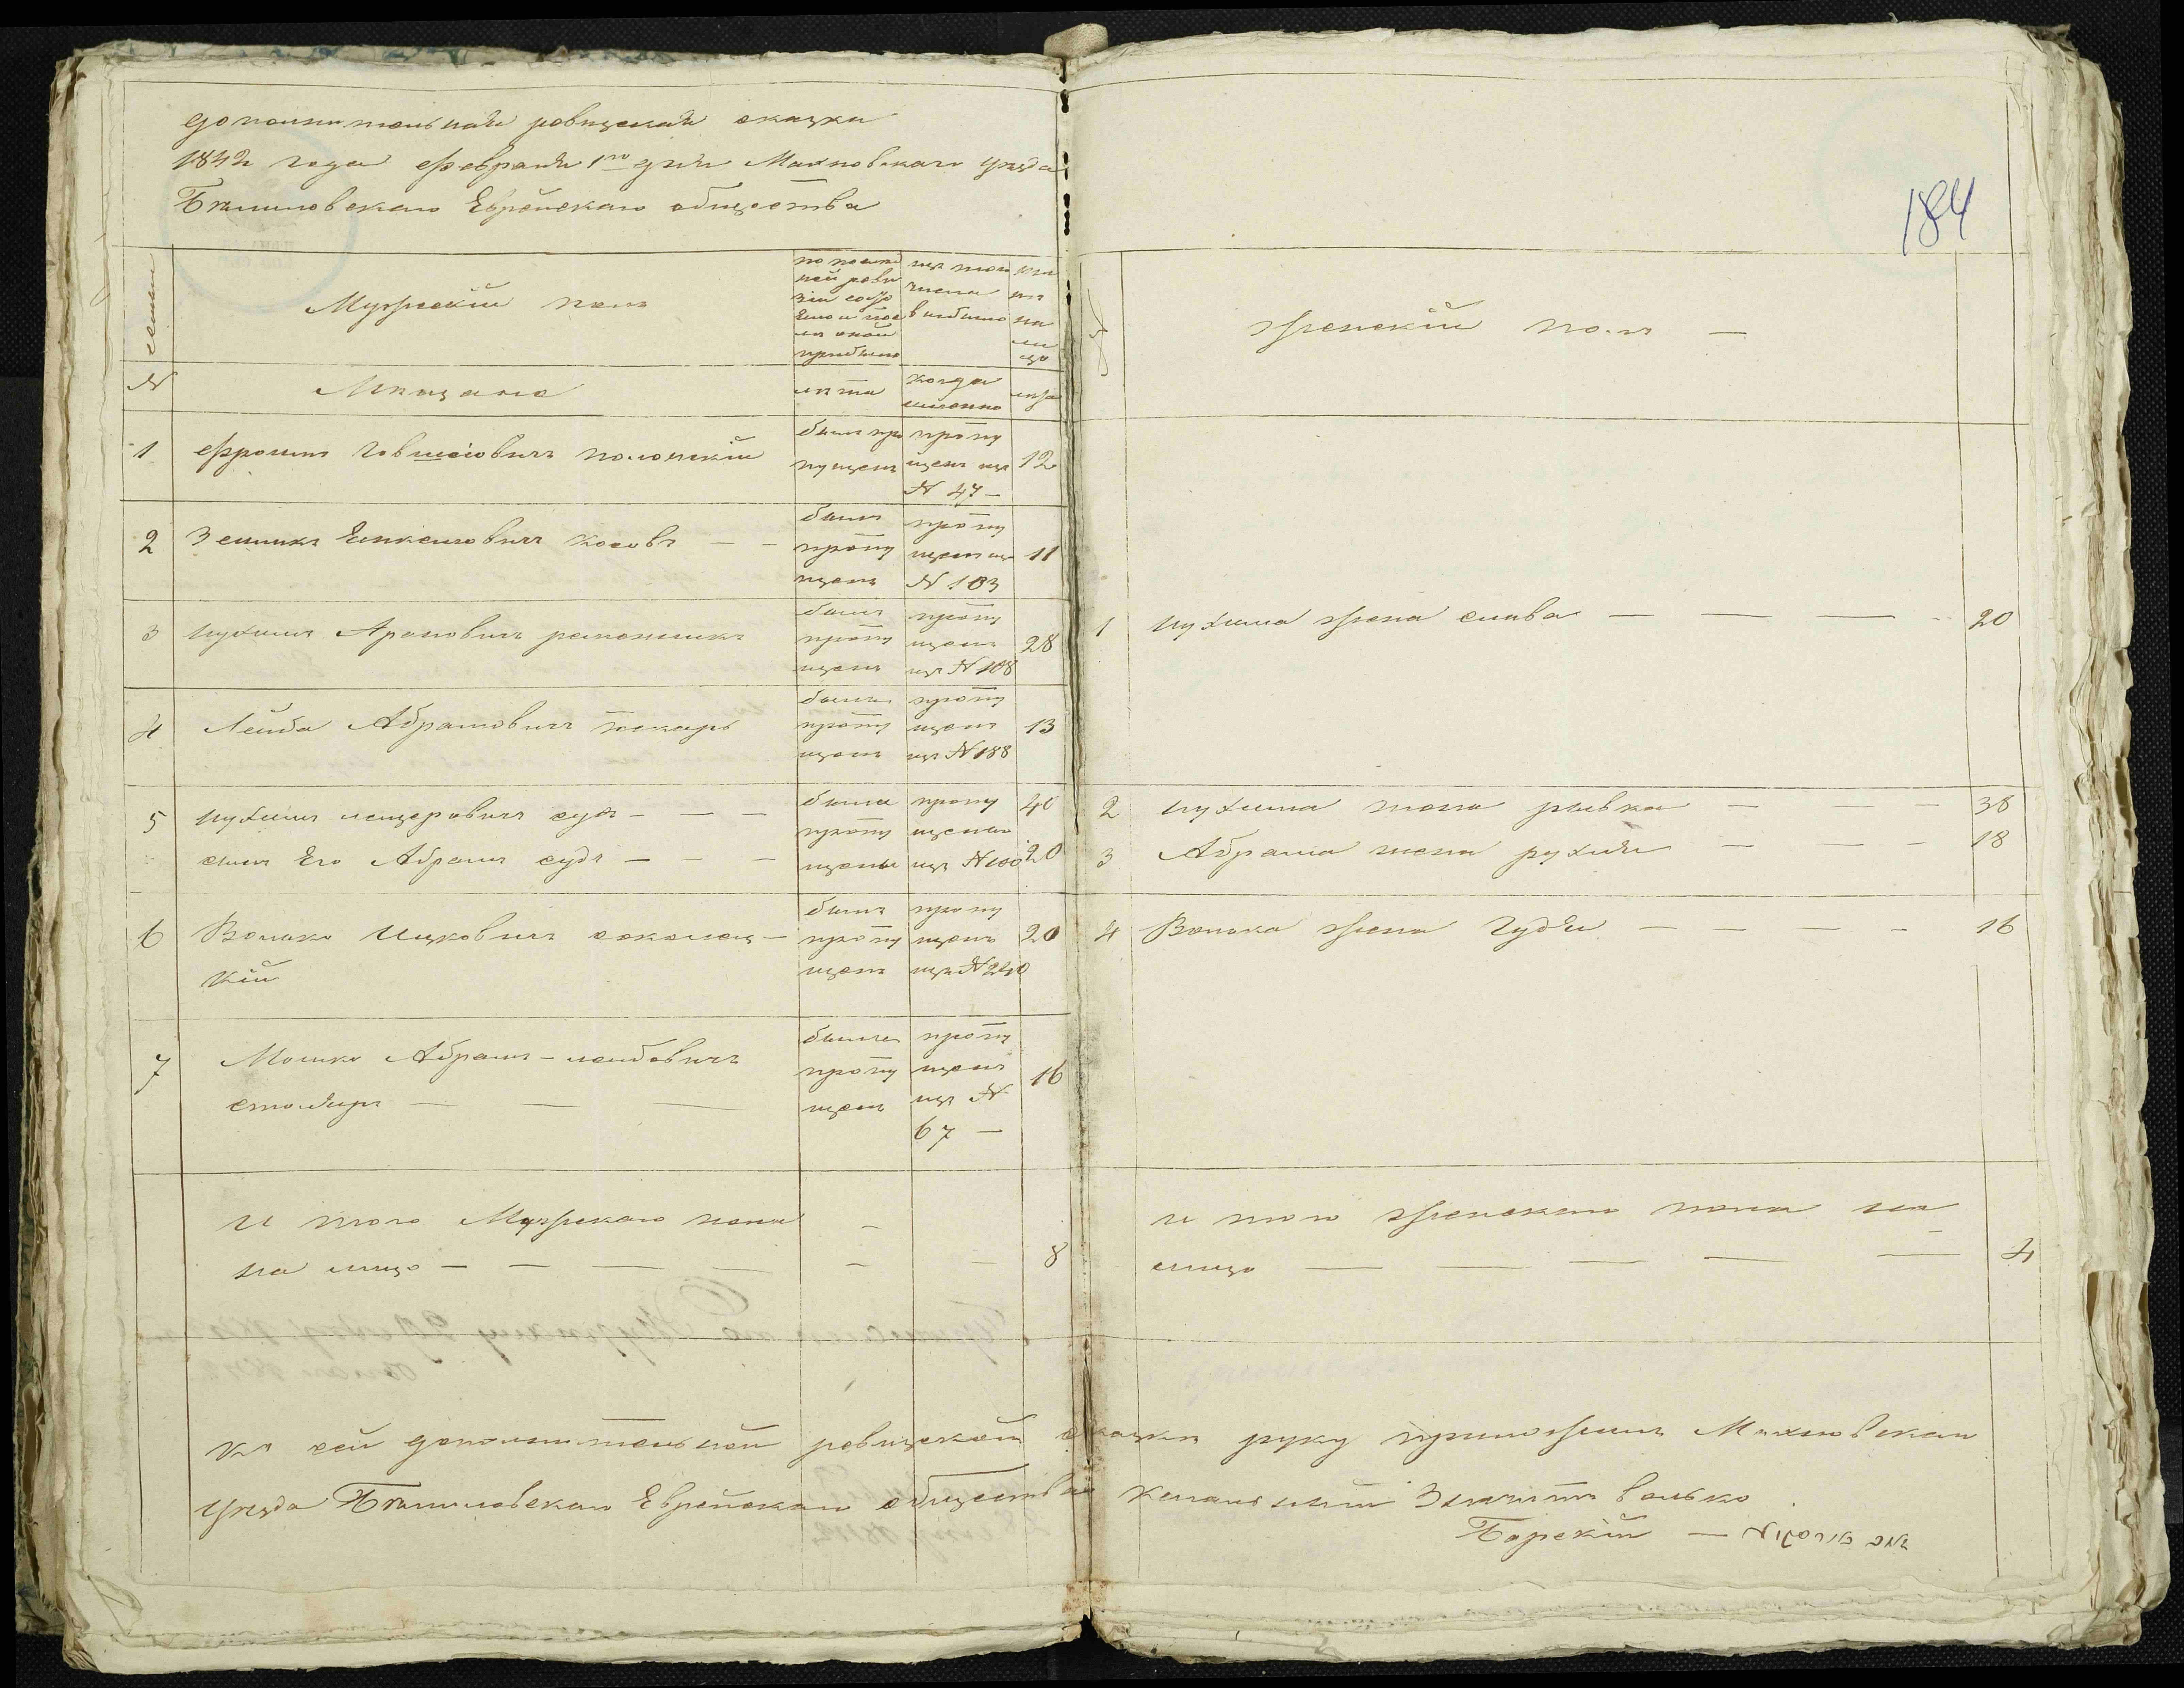 дополнительная ревизская сказка
1842 года февраля 1го дня Махновскаго уезда
Бѣлиловскаго Еврейскаго общества
184
семьи
Мужескій полъ
по послед
ней реви
зіи состо
яло и пос
лѣ оной
прибыло
изъ того
числа
выбыло
ны
нѣ
на
ли
цо
женскій полъ —
№
Мѣщане
лѣта
когда
именно
лѣта
1
Фроимъ Говшіовичъ полонскій
былъ про
пущенъ
пропу
щенъ изъ
№ 47 —
12
2
Зелникъ Косовъ — —
былъ
пропу
щенъ
пропу
щенъ изъ
№ 103
11
3
Нухимъ Ароновичъ
былъ
пропу
щенъ
пропу
щенъ
изъ № 108
28
1 Нухима жена слава — — — 20
4
Лейба Абрамовичъ пекарь
былъ
пропу
щенъ
пропу
щенъ
изъ № 188
13
5
Нухимъ лейзеровичъ судъ — — —
сынъ Его Абрамъ судъ — — —
были
пропу
щены
пропу
щены
изъ № 100
40
20
2 Нухима жена ривка — — — 38
3 Абрама жена рухля — — — 18
6
Волько Ицковичъ соколец—
кій
былъ
пропу
щенъ
пропу
щенъ
изъ № 240
20
4 Волька жена Гудя — — — — 16
7
Мошко Абрамъ-лейбовичъ
столяръ — — —
былъ
пропу
щенъ
пропу
щенъ
изъ №
67 —
16
и того Мужескаго пола
на лицо — — — — — — 8
и того женскаго пола на
лицо — — — — — 4
Къ сей дополнительной ревизской сказки руку приложилъ Махновскаго
уезда Бѣлиловскаго Еврейскаго общества волько
Борскій —